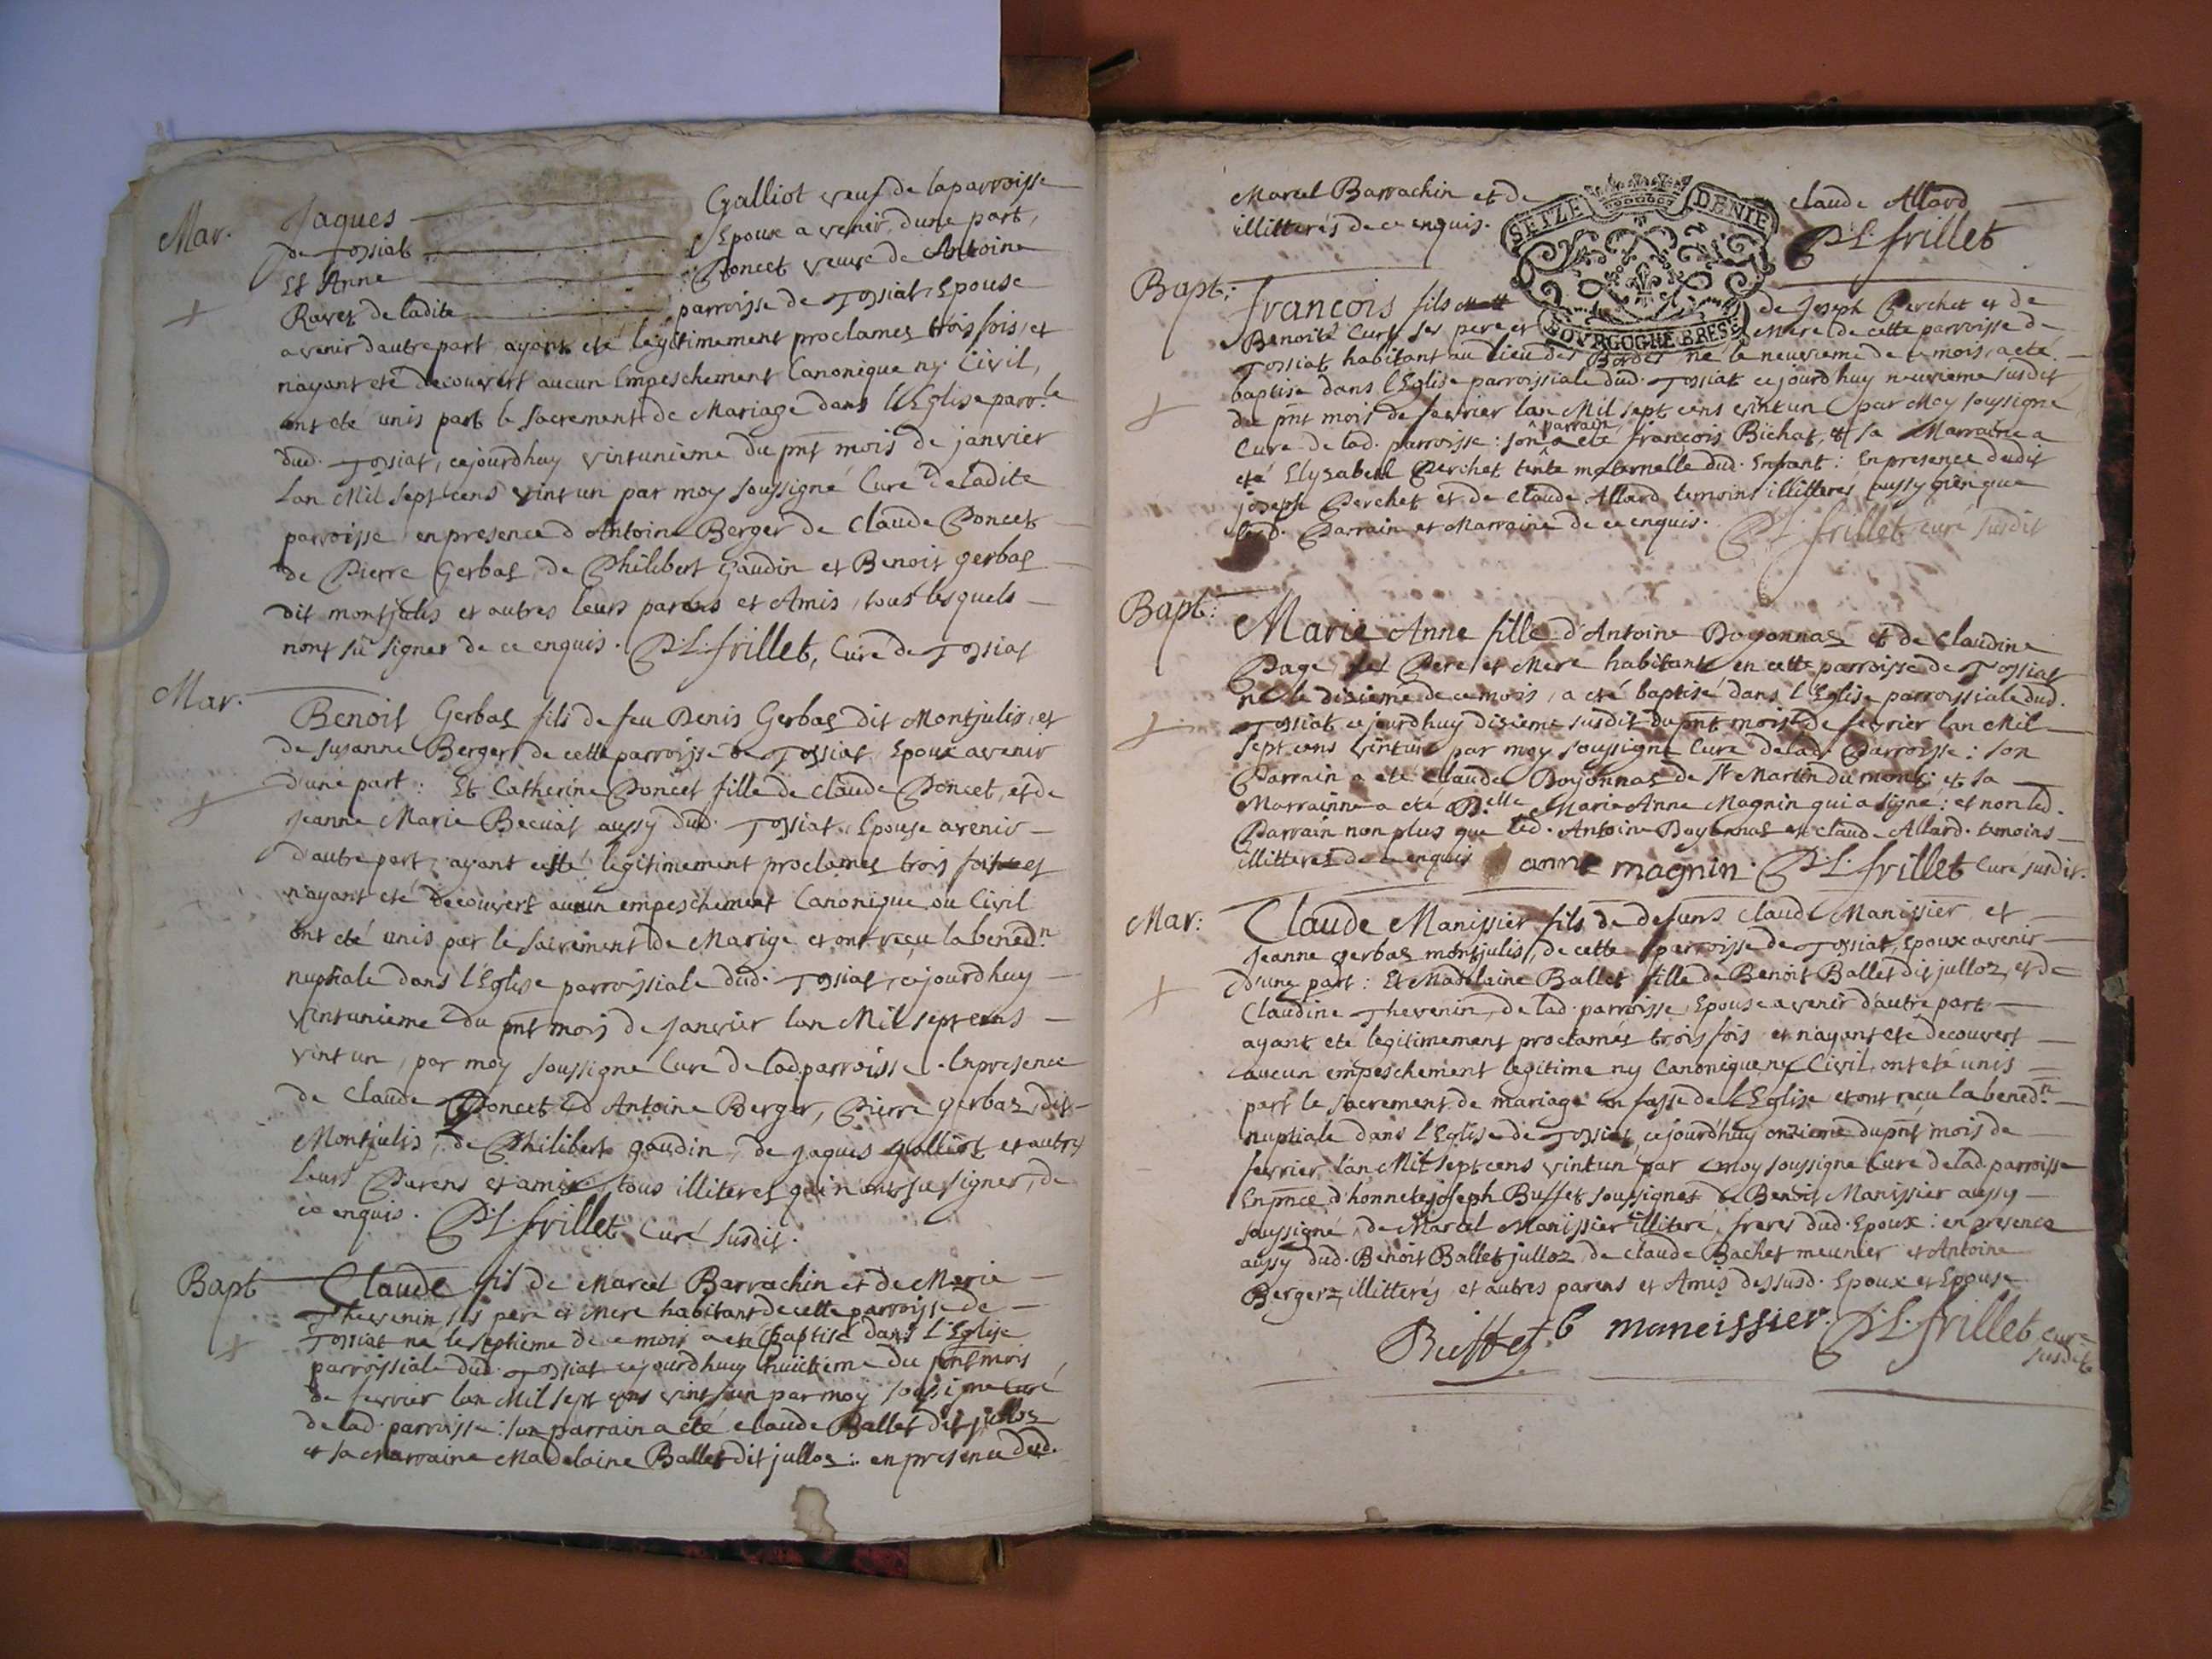 Mar. Jaques Galliot veuf de la parroisse
de Tossiat Epoux a venir, dune part,
Et Anne Poncet veuve de Antoine
Ravet de ladite parroisse de Tossiat Epouse
avenir dautre part, ayant eté légitimement proclames trois fois, et
nayant eté decouvert aucun Empeschement Canonique ny Civil,
ont eté unis part le sacrement de Mariage dans l'Eglise parr.le
dud. Tossiat, cejourdhuy vintunieme du pnt mois de janvier
lan Mil sept cens vint un par moy soussigné Curé de ladite
parroisse en presence d Antoine Berger de Claude Poncet
de Pierre Gerbas, de Philibert Gaudin et Benoit gerbas
dit montjulis et autres leurs parens et Amis, tous lesquels
n'ont sû signer de ce enquis. P.L. frillet, Curé de Tossiat
Mar. Benoit Gerbas fils de feu Denis Gerbas dit Montjulis, et
de Susanne Berger de cette parroisse de Tossiat Epoux avenir
d'une part: Et Catherine Poncet fille de Claude Poncet, et de
Jeanne Marie Becuat aussy dud. Tossiat Epouse avenir
d'autre part, ayant esté legitimement proclames trois fois et
n'ayant eté decouvert aucun empeschement Canonique ou Civil
ont eté unis par le sacrement de Marige et ont reçu la bened.n
nuptiale dans l'Eglise parroissiale dud. Tossiat, cejourdhuy
vintunieme du pnt mois de Janvier lan Mil sept cens
vint un, par moy soussigne Curé de lad. parroisse. En presence
de Claude Poncet d Antoine Berger, Pierre gerbaz, dit
Montjulis, de Philibert gaudin, de jaques galliot et autres
leurs Parens et amis tous illiteres qui n'ont su signer, de
ce enquis. P.L. frillet Curé susdit.
Bapt Claude fils de Marcel Barrachin et de Marie
Thevenin, ses pere et Mere habitant de cette parroisse de
Tossiat né le septieme de ce mois a eté Baptisé dans l'Eglise
parroissiale dud. Tossiat cejourdhuy huictieme du pnt mois
de fevrier lan Mil sept cens vint un par moy soussigne Curé
de lad. parroisse: son parrain a eté Claude Ballet dit julloz
et sa marraine Madelaine Ballet dit julloz: en presence dud.
Marcel Barrachin et de Claude Allard
illitterés de ce enquis. P.L. frillet
SEIZE DENIE
BOVRGOGNE BRESE
Bapt: francois fils de Joseph Perchet et de
Benoite Curt ses pere et Mere de cette parroisse de
Tossiat habitant au lieu des Bordes né le neuvieme de ce mois, a eté
baptise dans l'Eglise parroissiale dud. Tossiat cejourdhuy neuvieme susdit
du pnt mois de fevrier lan Mil sept cens vint un par Moy soussigné
parrain
Curé de lad. parroisse: son a eté francois Bichat, et sa Marraine a
eté Elysabeth Perchet tante maternelle dud. Enfant: En presence dudit
joseph Perchet et de Claude Allard temoins illitteres aussy bien que
lesd. Parrain et Marraine de ce enquis. P.L. frillet curé susdit
Bapt: Marie Anne fille d'Antoine Doyonnas et de Claudine
Page, ses Pere et Mere habitant en cette parroisse de Tossiat
né le dixieme de ce mois, a eté baptisé dans l'Eglise parroissiale dud.
Tossiat cejourdhuy dixieme susdit du pnt mois de fevrier lan Mil
sept cens vintun par moy soussigné Curé de lad. Parroisse: son
Parrain a eté Claude Doyonnas de St Martin du mont: et sa
Marrainne a eté D.elle Marie Anne Magnin qui a signé: et non led.
Parrain non plus que led. Antoine Doyonnas et Claude Allard temoins
illitteres de ce enquis anne magnin. P.L. frillet Curé susdit.
Mar: Claude Manissier fils de defunt Claude Manissier et
Jeanne gerbas montjulis, de cette parroisse de Tossiat, Epoux avenir
d'une part: Et Madelaine Ballet fille de Benoit Ballet dit julloz, et de
Claudine Thevenin, de lad. parroisse, Epouse avenir d'autre part
ayant eté legitimement proclamés trois fois et n'ayant eté decouvert
aucun empeschement legitime ny Canonique ny Civil, ont eté unis
part le sacrement de mariage en fasse de l'Eglise et ont reçu la bened.n
nuptiale dans l'Eglise de Tossiat, cejourd'huy onzieme du pnt mois de
fevrier, l'an Mil sept cens vintun par moy soussigne Curé de lad. parroisse
En pnce d'honnete joseph Buffet soussigné et Benoit Manissier aussy
soussigné, de Marcel Manissier illiteré, freres dud. Epoux: en presence
aussy dud. Benoit Ballet julloz, de Claude Bachet meunier et Antoine
Berger, illitterés et autres parens et Amis dessusd. Epoux et Epouse
Buffet b maneissier. P.L. frillet curé
susdit